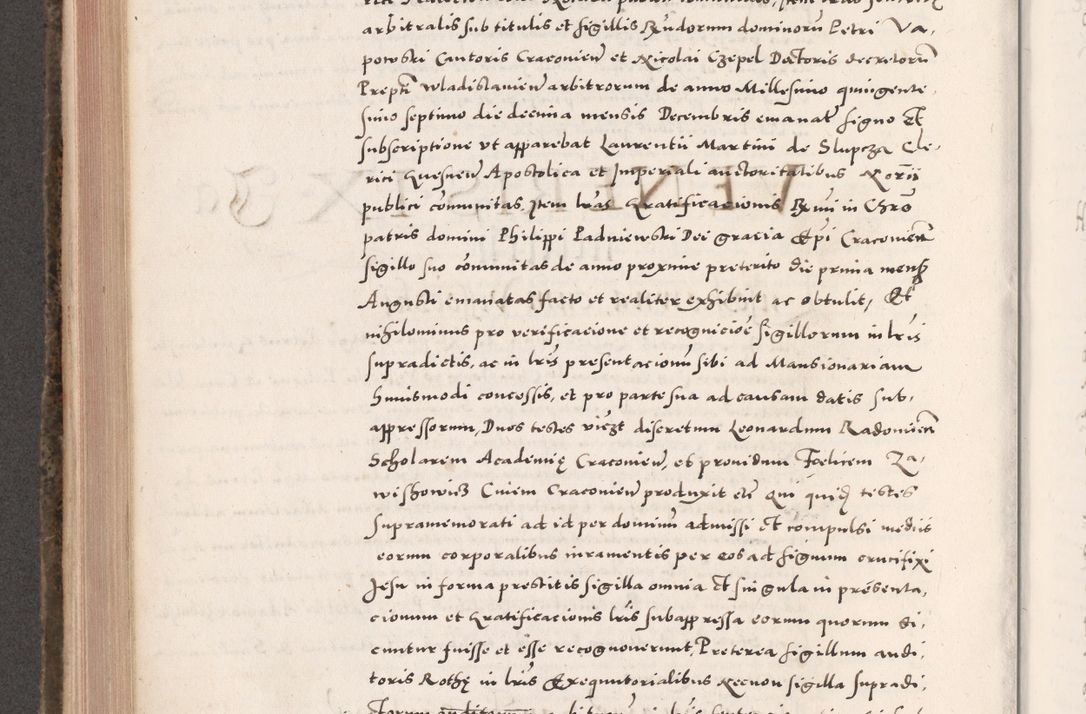 arbitralis sub titulis et sigillis Rndorum dominorũ Petri Va,
powski Cantoris Cracovien̄ et Nicolai Czepel Doctoris decretorũ
Prepti Wladislavien̄ arbitrorum de anno Millesimo quingente,
simo septimo die decima mensis Decembris emanat signo Et
subscriptione ut apparebat Laurentii Martini de Slupcza Cle,
rici Gnesnen̄ Apostolica et Imperiali auctoritatibus Norii
publici cõmunitas, Item lras Gratificacionis Rmi in Chrõ
patris domini Philippi Padniewski Dei gracia Epi Cracovien̄
sigillo suo cõmunitas de anno proxime preterito die prima mens
Augusti emanatas facto et realiter exhibuit ac obtulit, Et
nihilominus pro verificacione et recognicioẽ sigillorum in lris
supradictis, ac in lris presentacionũ sibi ad Mansionariam
huiusmodi concessis, et pro parte sua ad causam datis sub,
appressorum, Duos testes viczt discretum Leonardum Radomien̄
Scholarem Academię Cracovien̄, et providum Foelicem Za,
wishowicz Civem Cracovien̄ produxit etc Qui quid testes
supramemorati ad id per dominũ admissi et compulsi mediis
eorum corporalibus iuramentis per eos ad signum crucifixi
Jesu in forma prestitis sigilla omnia et singula in presenta,
cionum et Gratificacionis lris subappressa eorum quorum di,
cuntur fuisse et esse recognoverunt, Preterea sigillum audi,
toris Rothę in lris Exequutorialibus Necnon sigilla supradi,